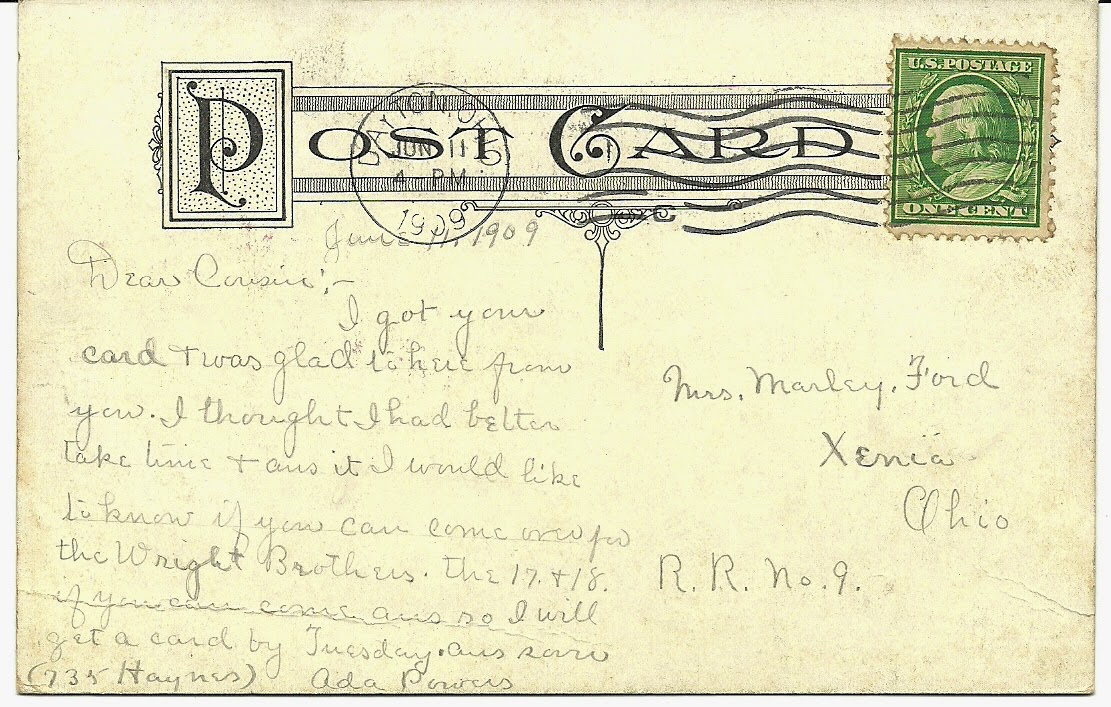 U.S. POSTAGE
POST CARD
DAYTON, OHIO
JUN 11
4 PM
1909
ONE CENT
June 11, 1909
Dear Cousin;-
I got your
card + was glad to here from
you. I thought I had better
take time + ans it I would like
to know if you can come over for
the Wright Brothers. the 17. + 18.
if you can come ans so I will
get a card by Tuesday. ans soon
(735 Haynes) Ada Powers
Mrs. Marley. Ford
Xenia
Ohio
R. R. No. 9.